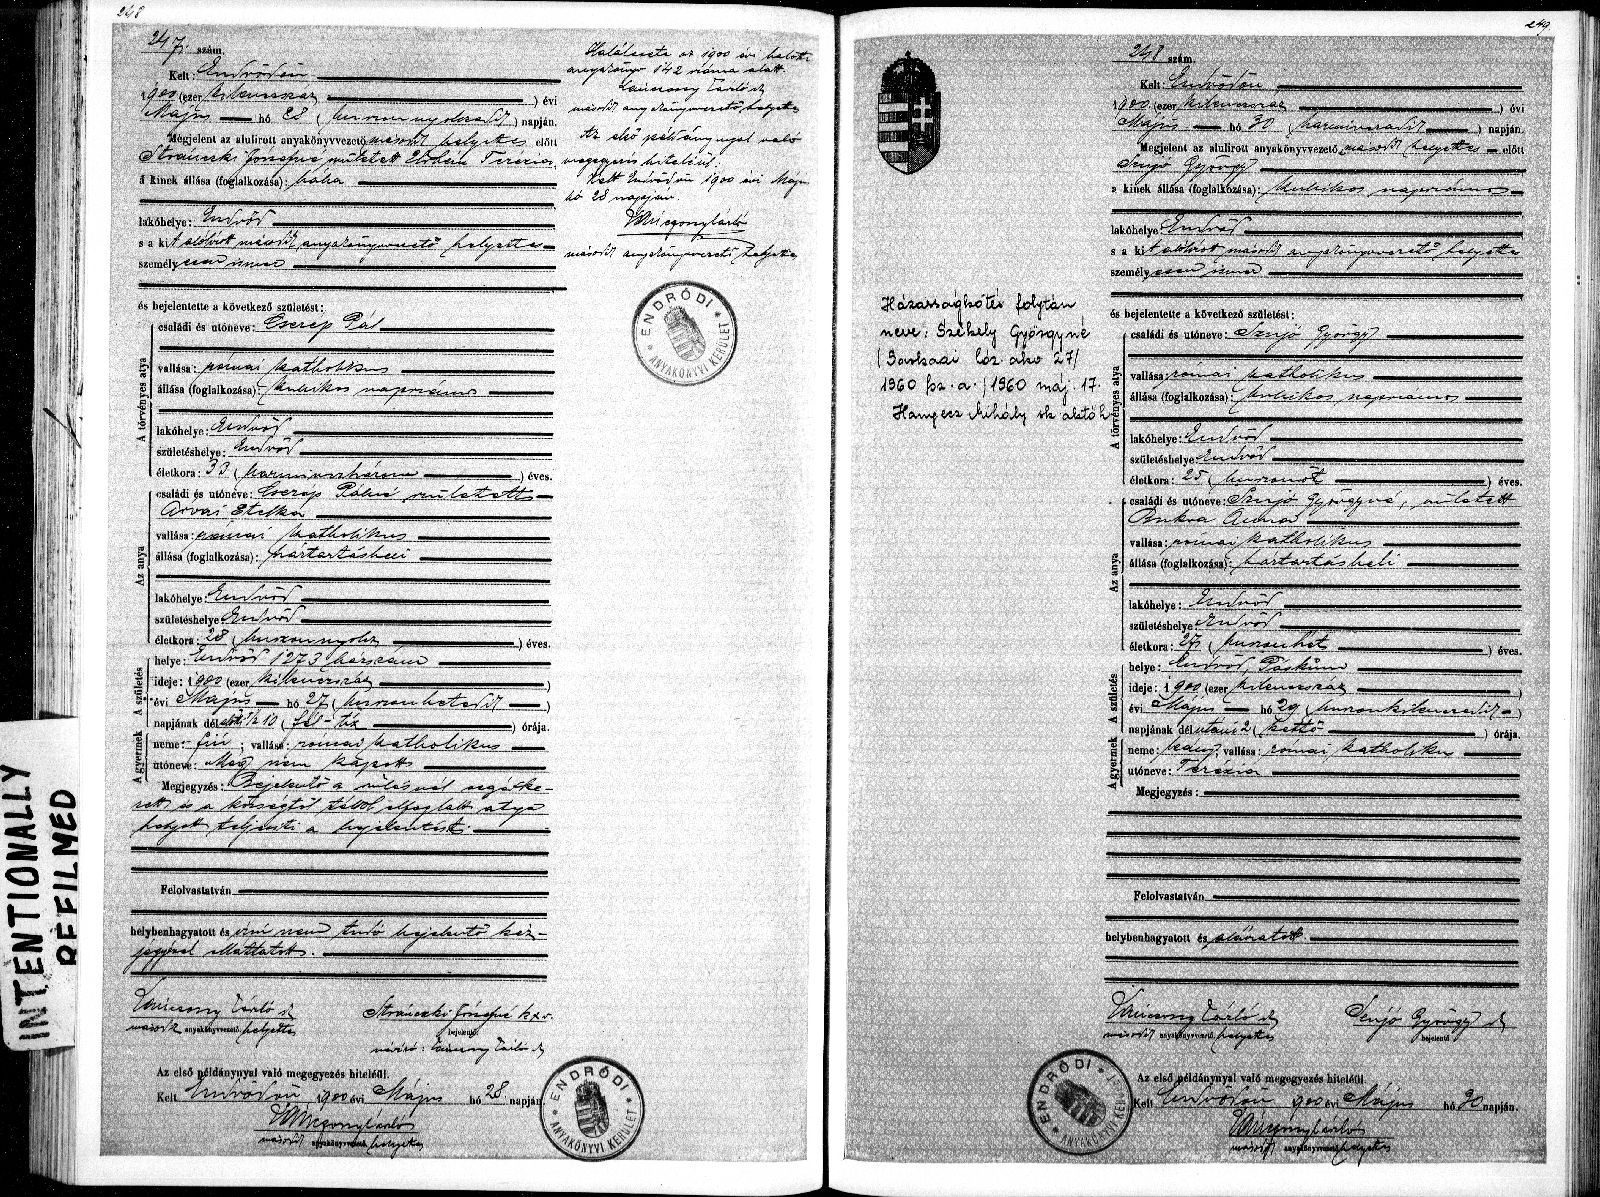 248
247. szám.
Kelt: Endrődön
1900 (ezer kilencszáz ) évi
Május hó 28 (huszonnyolcadik) napján.
Megjelent az alulirott anyakönyvvezető másodh helyettes előtt
Józsefné született Terézia
a kinek állása (foglalkozása): bába
lakóhelye: Endrőd
s a kit alólírott másodh anyakönyvvezető helyettes
személyesen ismer
és bejelentette a következő születést:
A törvényes atya
családi és utóneve: Cserep Pál
vallása: római katholikus
állása (foglalkozása): kubikos napszámos
lakóhelye: Endrőd
születéshelye: Endrőd
életkora: 33 (harminczhárom ) éves.
Az anya
családi és utóneve: Cserép Pálné született
Arvai Etelka
vallása: római katholikus
állása (foglalkozása): háztartásbeli
lakóhelye: Endrőd
születéshelye: Endrőd
életkora: 28 (huszonnyolcz ) éves.
A születés
helye: Endrőd 1273 házszám
ideje: 1900 (ezer kilencszáz )
évi Május hó 27 (huszonhetedik )
napjának dél előtt 1/2 10 (fél-tíz ) órája.
A gyermek
neme: fiú; vallása: római katholikus
utóneve: Még nem kapott
Megjegyzés: Bejelentő a szülésnél segédke-
zett és a községtől távol elfoglalt atya
helyett teljesiti a bejelentést.
Felolvastatván
helybenhagyatott és írni nem tudó bejelentő kéz-
jegyével elláttatott.
másodh anyakönyvvezető helyettes
Józsefné k.x.v.
bejelentő
Az első példánynyal való megegyezés hiteléül.
Kelt Endrődön 1900 évi Május hó 28 napján.
másodh anyakönyvvezető helyettes
Halálesete az 1900 évi halotti
anyakönyv 142 száma alatt.
másodh anyakönyvvezető helyettes
Az első példánynyal való
megegyezés hiteléül:
Kelt Endrődön 1900 évi Május
hó 28 napján.
másodh anyakönyvvezető helyettes
ENDRŐDI ANYAKÖNYVI KERÜLET
ENDRŐDI ANYAKÖNYVI KERÜLET
INTENTIONALLY
REFILMED
249
248 szám.
Kelt: Endrődön
1900 (ezer kilencszáz ) évi
Május hó 30 (harminczadik ) napján.
Megjelent az alulirott anyakönyvvezető másodh helyettes előtt
Szujó György
a kinek állása (foglalkozása): kubikos napszámos
lakóhelye: Endrőd
s a kit alólírott másodh anyakönyvvezető helyettes
személyesen ismer
és bejelentette a következő születést:
A törvényes atya
családi és utóneve: Szujó György
vallása: római katholikus
állása (foglalkozása): kubikos napszámos
lakóhelye: Endrőd
születéshelye: Endrőd
életkora: 25 (huszonöt ) éves.
Az anya
családi és utóneve: Szujó Györgyné, született
Anna
vallása: római katholikus
állása (foglalkozása): háztartásbeli
lakóhelye: Endrőd
születéshelye: Endrőd
életkora: 27 (huszonhét ) éves.
A születés
helye: Endrőd,
ideje: 1900 (ezer kilencszáz )
évi Május hó 29 (huszonkilencedik )
napjának dél utáni 2 (kettő ) órája.
A gyermek
neme: leány; vallása: római katholikus
utóneve: Terézia
Megjegyzés:
Felolvastatván
helybenhagyatott és aláiratott.
másodh anyakönyvvezető helyettes
Szujó György
bejelentő
Az első példánynyal való megegyezés hiteléül.
Kelt Endrődön 1900 évi Május hó 30 napján.
másodh anyakönyvvezető helyettes
Házasságkötés folytán
neve: Székely Györgyné
27/
1960 sz. a./1960 máj. 17.
Mihály sk
ENDRŐDI ANYAKÖNYVI KERÜLET